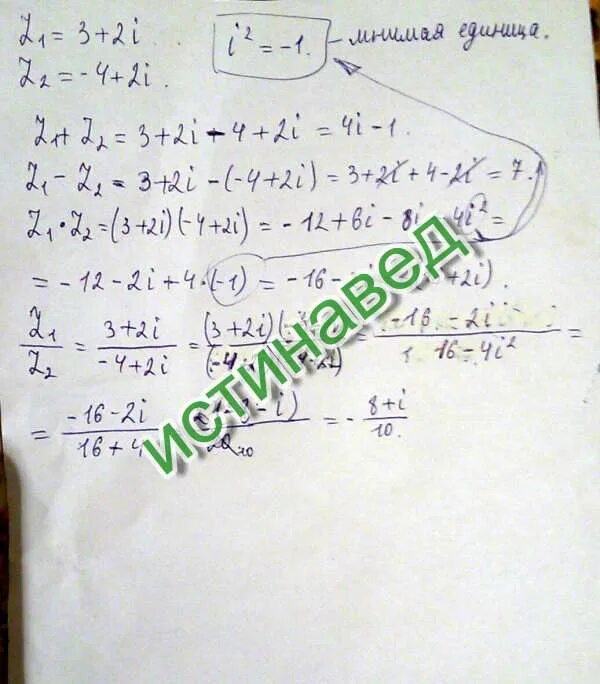 Z₁ = 3+2i
i² = -1. - мнимая единица.
Z₂ = -4+2i.
Z₁+ Z₂ = 3+2i - 4+2i = 4i-1.
Z₁ - Z₂ = 3+2i - (-4+2i) = 3+2i+4-2i = 7.
Z₁·Z₂ = (3+2i)(-4+2i) = -12+6i - 8i 4i² =
= -12-2i+4·(-1) = -16 - +2i).
Z₁/Z₂ = (3+2i)/(-4+2i) = (3+2i)( = (-16-2i)/(16-4i²) =
= (-16-2i)/(16+4 -i)/20 10 = - (8+i)/10.
истинавед